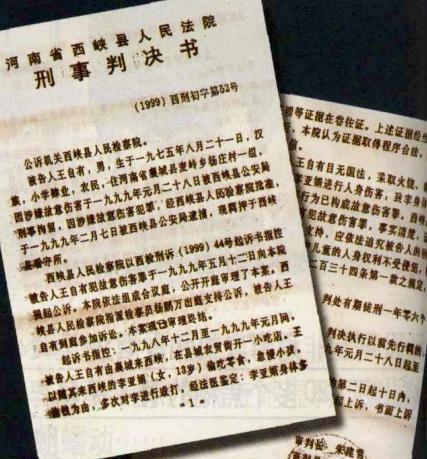 河南省西峡县人民法院
刑事判决书
(1999)西刑初字第52号
公诉机关西峡县人民检察院。
被告人王自有,男,生于一九七五年八月二十一日,汉
族,小学毕业,农民,住河南省虞城县家岭乡杨庄村一组,
因涉嫌故意伤害于一九九九年元月二十八日被西峡县公安局
刑事拘留,因涉嫌故意伤害犯罪,经西峡县人民检察院批准,
于一九九九年二月七日被西峡县公安局逮捕,现羁押于西峡
县看守所。
西峡县人民检察院以西检刑诉(1999)44号起诉书指控
被告人王自有犯故意伤害罪于一九九九年五月十二日向本院
提起公诉。本院依法组成合议庭,公开开庭审理了本案。西
峡县人民检察院指派检察员杨鹏万出庭支持公诉,被告人王
自有到庭参加诉讼。本案现已审理终结。
起诉书指控:一九九八年十二月至一九九九年元月间,
被告人王自有由虞城来西峡,在县城农贸街开一小吃店。王
以随其来西峡的李亚娟(女,13岁)偷吃零食,怠慢小孩,
偷钱为由,多次对李进行殴打,经法医鉴定:李亚娟身体多
- 1 -
等证据在卷佐证。上述证据经
,本院认为证据取得程序合法,
王自有目无国法,采取火烧、
亚娟进行人身伤害,致李身体
行为已构成故意伤害罪。西峡
犯故意伤害罪,事实清楚,证
支持,应依法追究被告人的刑
儿童的人身权利不受侵犯,
二百三十四条第一款之规定,
判处有期徒刑一年零六个
判决执行以前先行羁押的,
九年元月二十八日起至
的第二日起十日内,
起上诉,书面上诉
审判长 朱建营